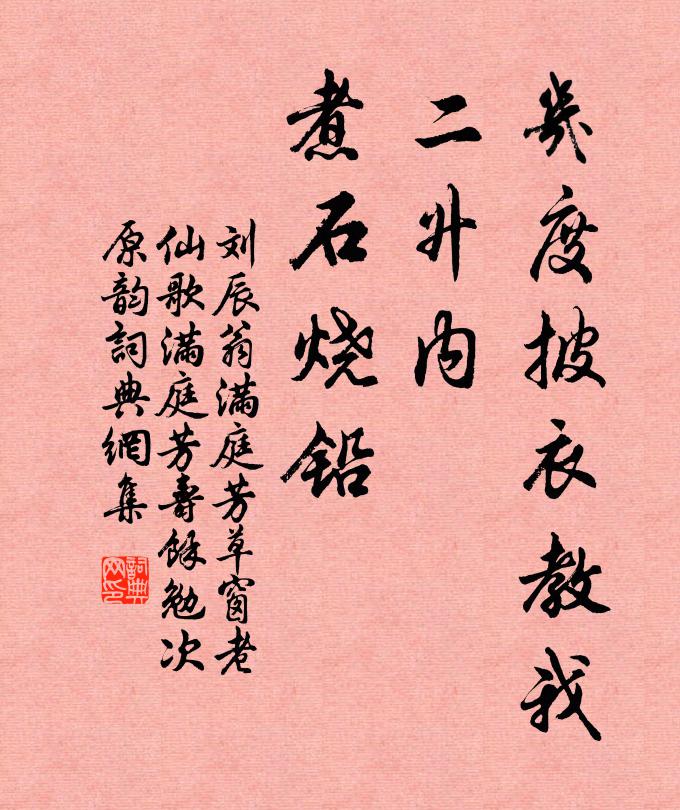 几度披衣教我
二升内
煮石烧铅
刘辰翁满庭芳草窗老
仙歌满庭芳寿馀勉次
原韵詞典網集
詞典网印